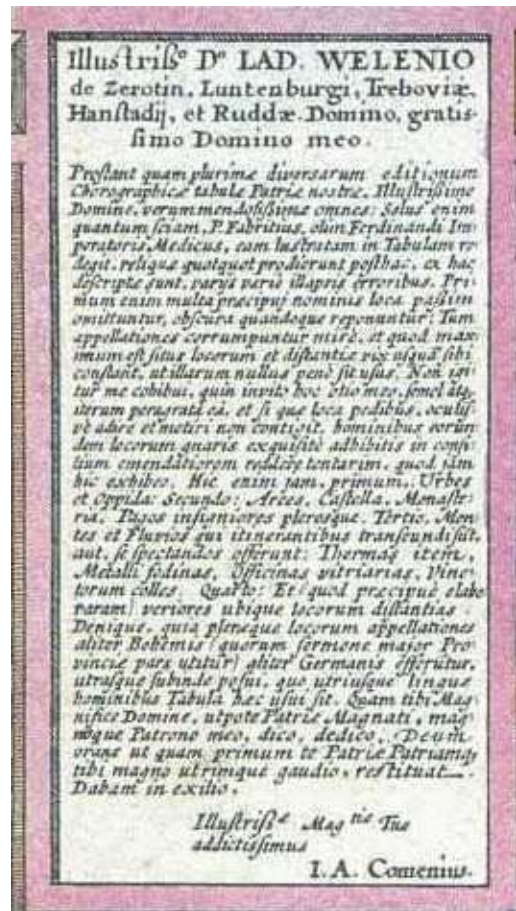 Illustrisṣ° Dn° LAD. WELENIO
de Zerotin, Luntenburgi, Treboviæ,
Hanstadij, et Ruddæ Domino, gratis-
simo Domino meo.
Prostant quam plurimæ diversarum editionum
Chorographicæ tabulæ Patriæ nostræ, Illustrissime
Domine, verum mendosissimæ omnes: Solus enim
quantum sciam, P. Fabritius, olim Ferdinandi Im-
peratoris Medicus, eam lustratam in Tabulam re-
degit, reliquæ quotquot prodierunt posthac, ex hac
descriptæ sunt, varijs variè illapsis erroribus. Pri-
mum enim multa præcipuj nominis loca passim
omittuntur, obscura quandoque reponuntur: Tum
appellationes corrumpuntur mirè, et quod max-
imum est situs locorum et distantiæ vix usquã sibi
constãt, ut illarum nullus penè sit usus. Non igi-
tur me cohibui, quin invito hoc otio meo, semel atq,
iterum peragrata eã, et si quæ loca pedibus, oculis-
vè adire et metiri non contigit, hominibus eorun-
dem locorum gnaris exquisitè adhibitis in consi-
lium emendatiorem reddere tentarim, quod jãm
hic exhibeo. Hic enim jam primum, Urbes
et Oppida: Secundo: Arces, Castella, Monaste-
ria, Pagos insigniores plerosque. Tertio, Mon-
tes et Fluvios qui itinerantibus transeundi sũt,
aut se spectandos offerunt: Thermas item,
Metalli fodinas, Officinas vitriarias, Vine-
torum colles. Quarto: Et (quod præcipuè elabo-
raram) veriores ubique locorum distantias.
Denique, quia pleræque locorum appellationes
aliter Bohemis (quorum sermone major Pro-
vinciæ pars utitur) aliter Germanis efferũtur,
utrasque subinde posui, quo utriusque linguæ
hominibus Tabula hæc usui sit. Quam tibi Mag-
nifice Domine, utpote Patriæ Magnati, mag-
noque Patrono meo, dico, dedico, Deum
orans ut quam primum te Patriæ Patriamq,
tibi magno utrimque gaudio, restituat.
Dabam in exilio.
Illustrisṣ æ Mag tiæ Tuæ
addictissimus
I. A. Comenius.